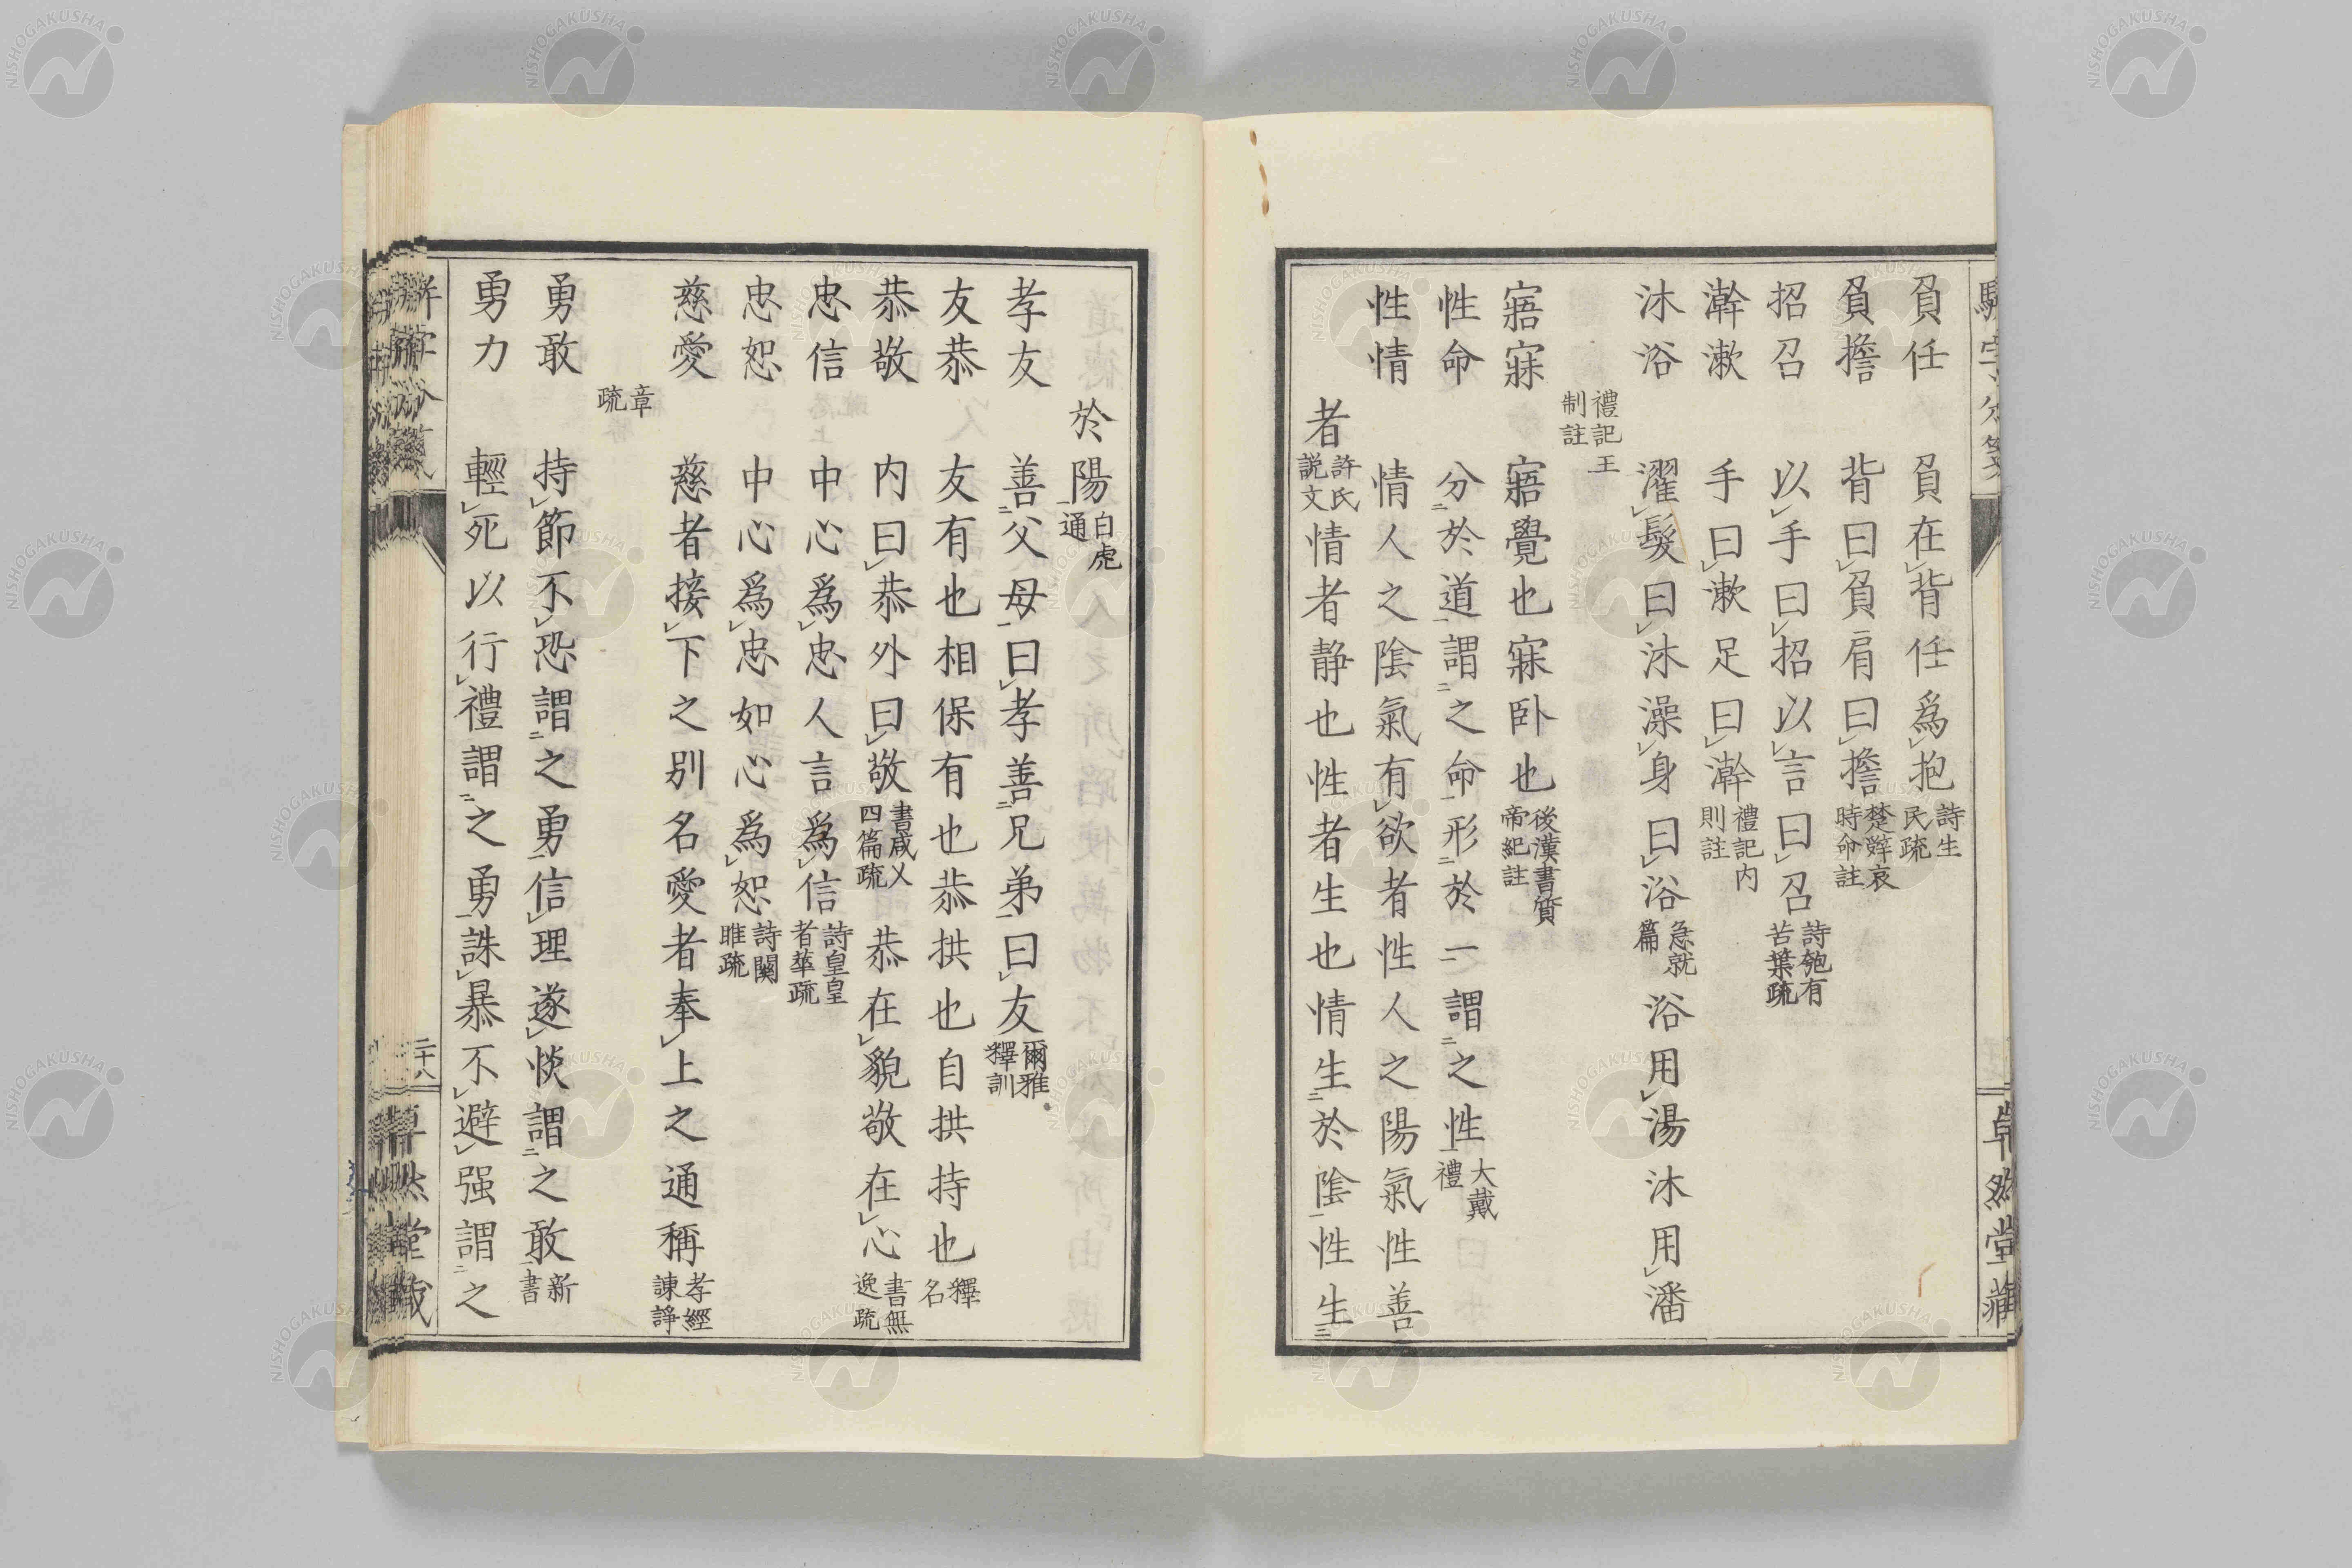 負任　負在背任爲抱詩生民疏
負擔　背曰負肩曰擔楚辭哀時命註
招召　以手曰招以言曰召詩匏有苦葉疏
澣漱　手曰漱足曰澣禮記内則註
沐浴　濯髮曰沐澡身曰浴急就篇浴用湯沐用潘
禮記王制註
寤寐　寤覺也寐卧也後漢書質帝紀註
性命　分於道謂之命形於一謂之性大戴禮
性情　情人之陰氣有欲者性人之陽氣性善
者許氏説文情者静也性者生也情生於陰性生
於陽白虎通
孝友　善父母曰孝善兄弟曰友爾雅釋訓
友恭　友有也相保有也恭拱也自拱持也釋名
恭敬　内曰恭外曰敬書咸乂四篇疏恭在貌敬在心書無逸疏
忠信　中心爲忠人言爲信詩皇皇者華疏
忠恕　中心爲忠如心爲恕詩關雎疏
慈愛　慈者接下之别名愛者奉上之通稱孝經諫諍
章疏
勇敢　持節不恐謂之勇信理遂惔謂之敢新書
勇力　輕死以行禮謂之勇誅暴不避强謂之
二十八
卓然堂藏
NISHOGAKUSHA